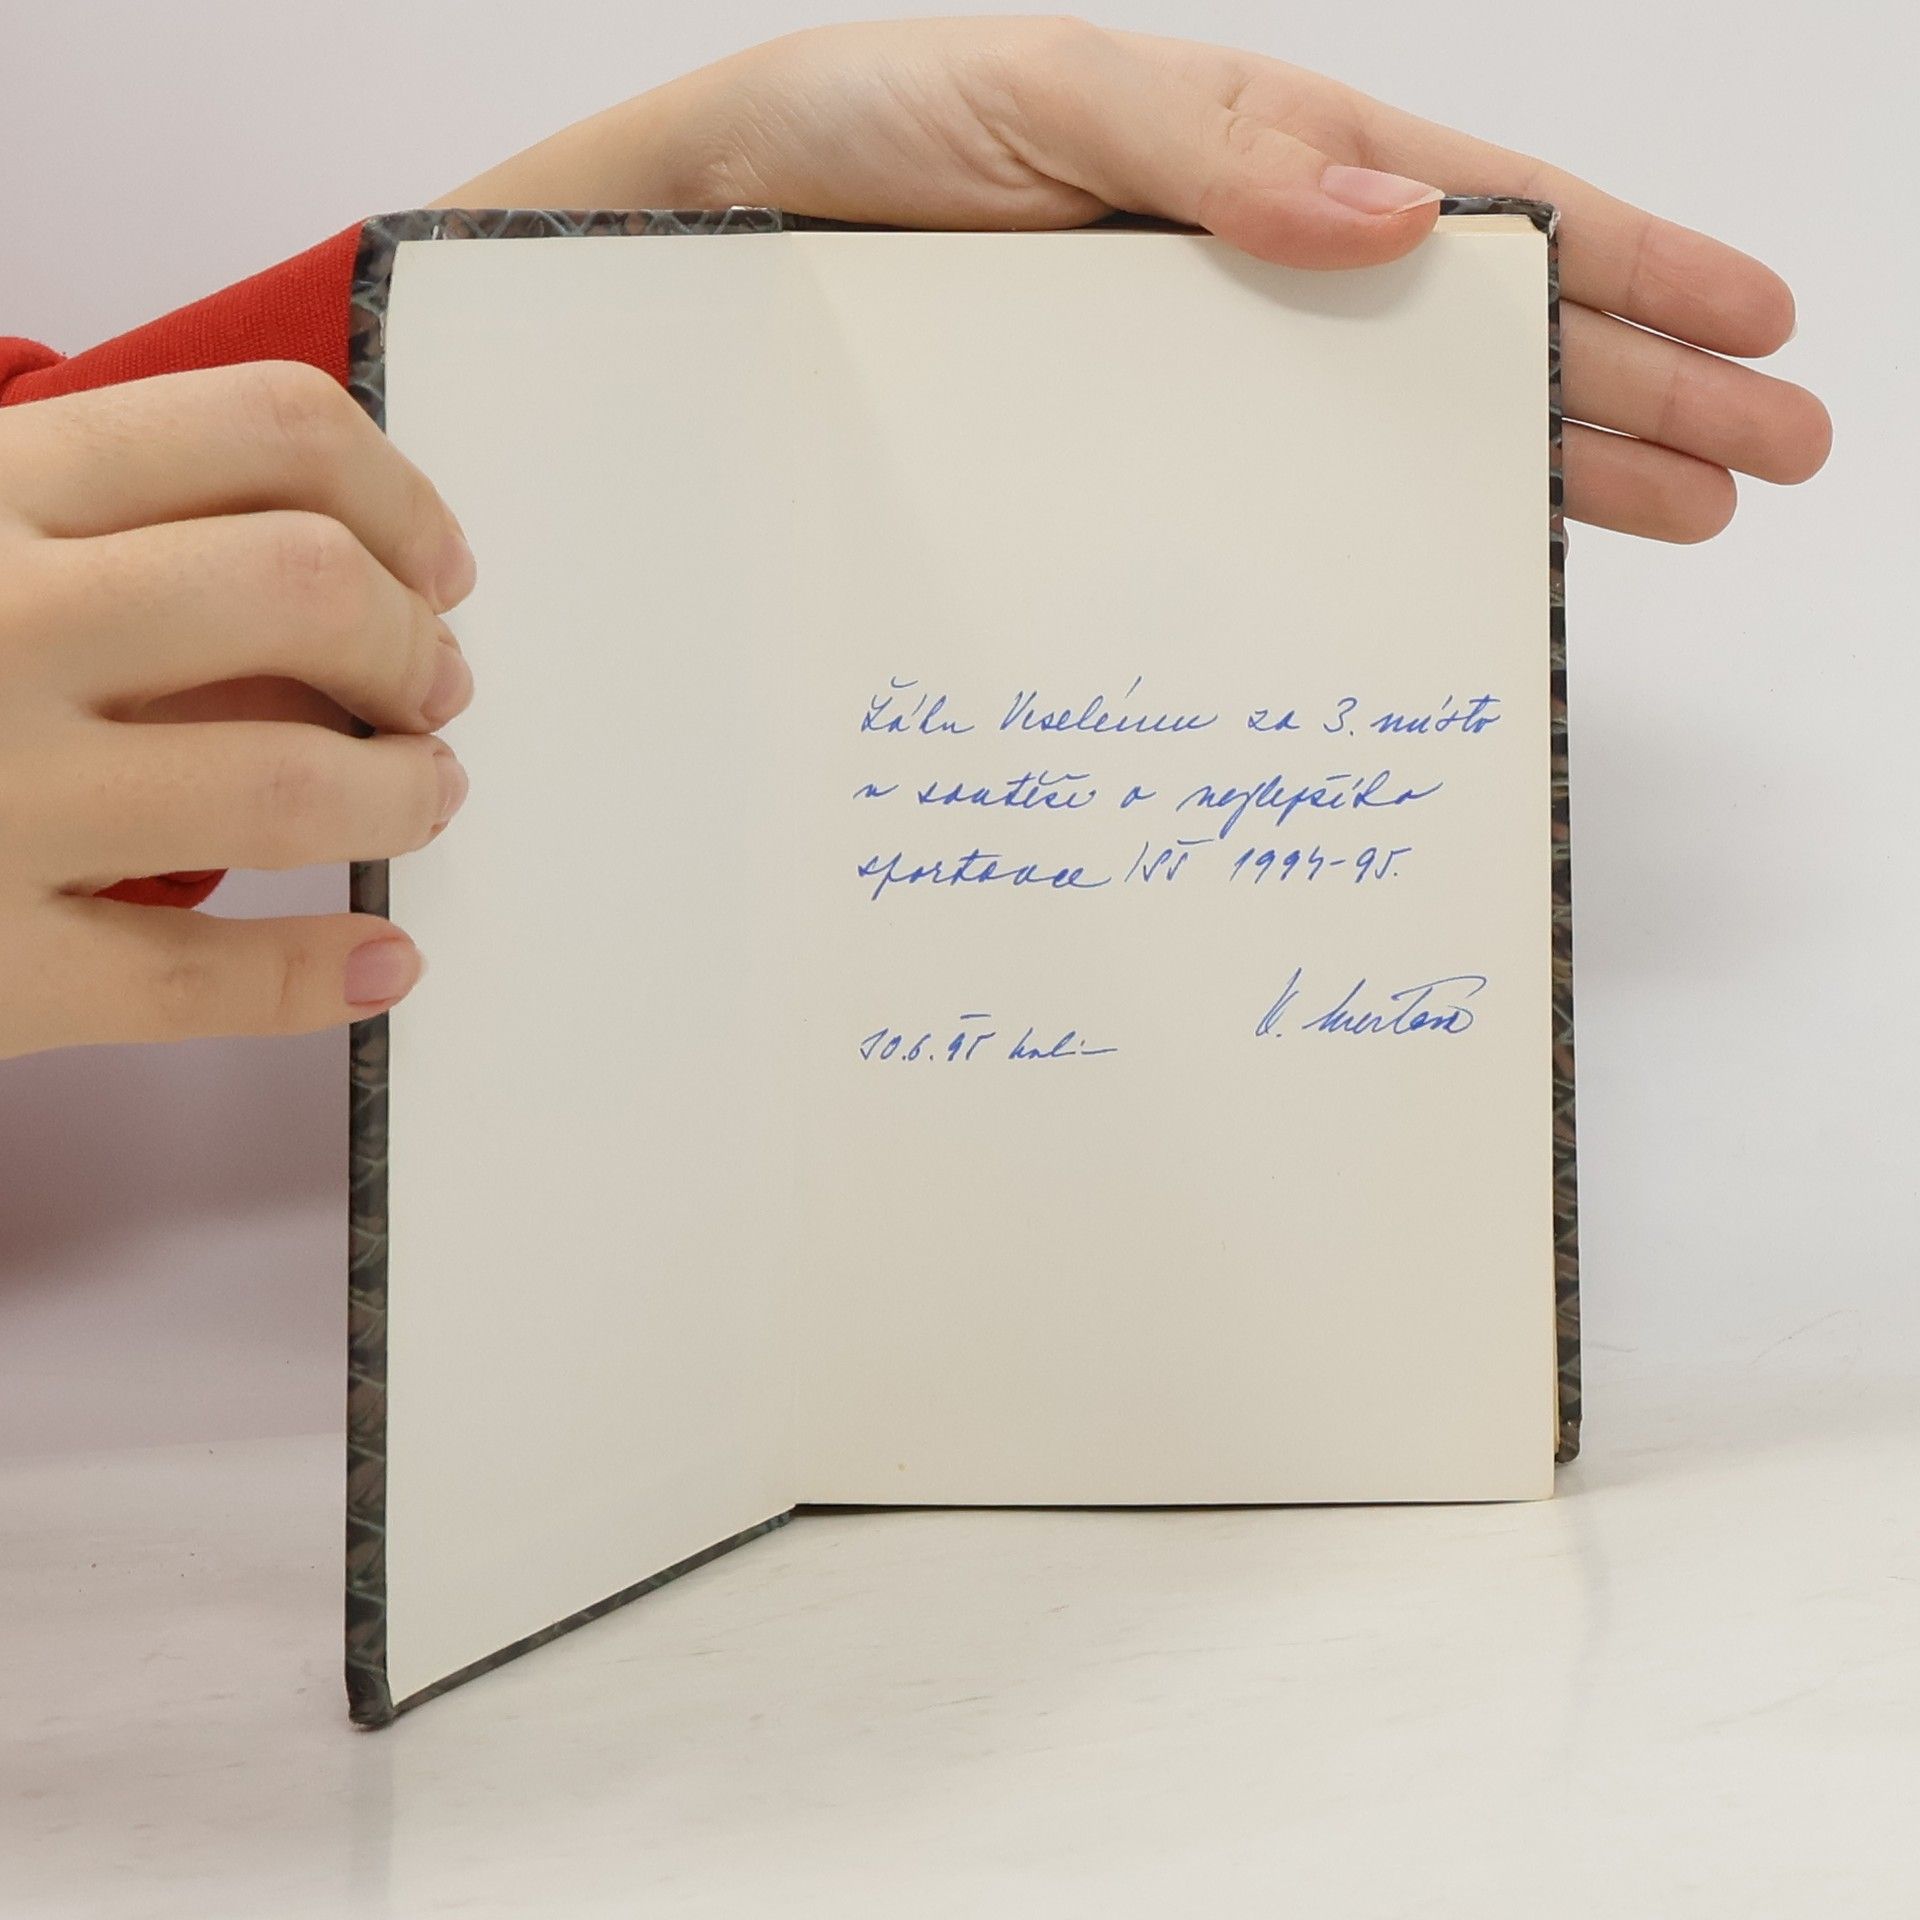 Žáku Veselému za 3. místo
v soutěži o nejlepšího
sportovce ISŠ 1994-95.
30.6.95